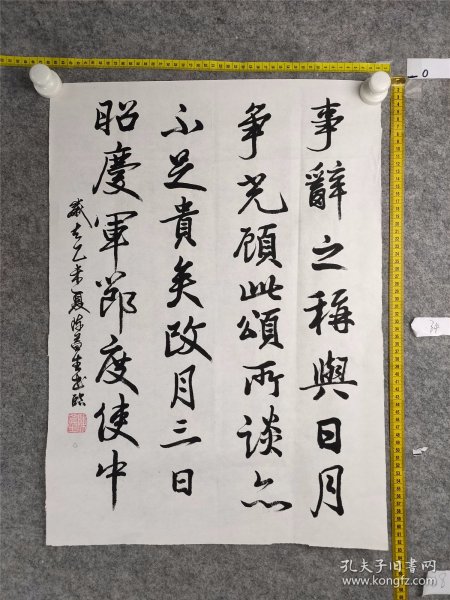 事辭之稱與日月
争光顧此頌所談亦
不足貴矣改月三日
昭慶軍節度使中
歲在乙未夏陈
书临
0
34
孔夫子旧书网
www.kongfz.com